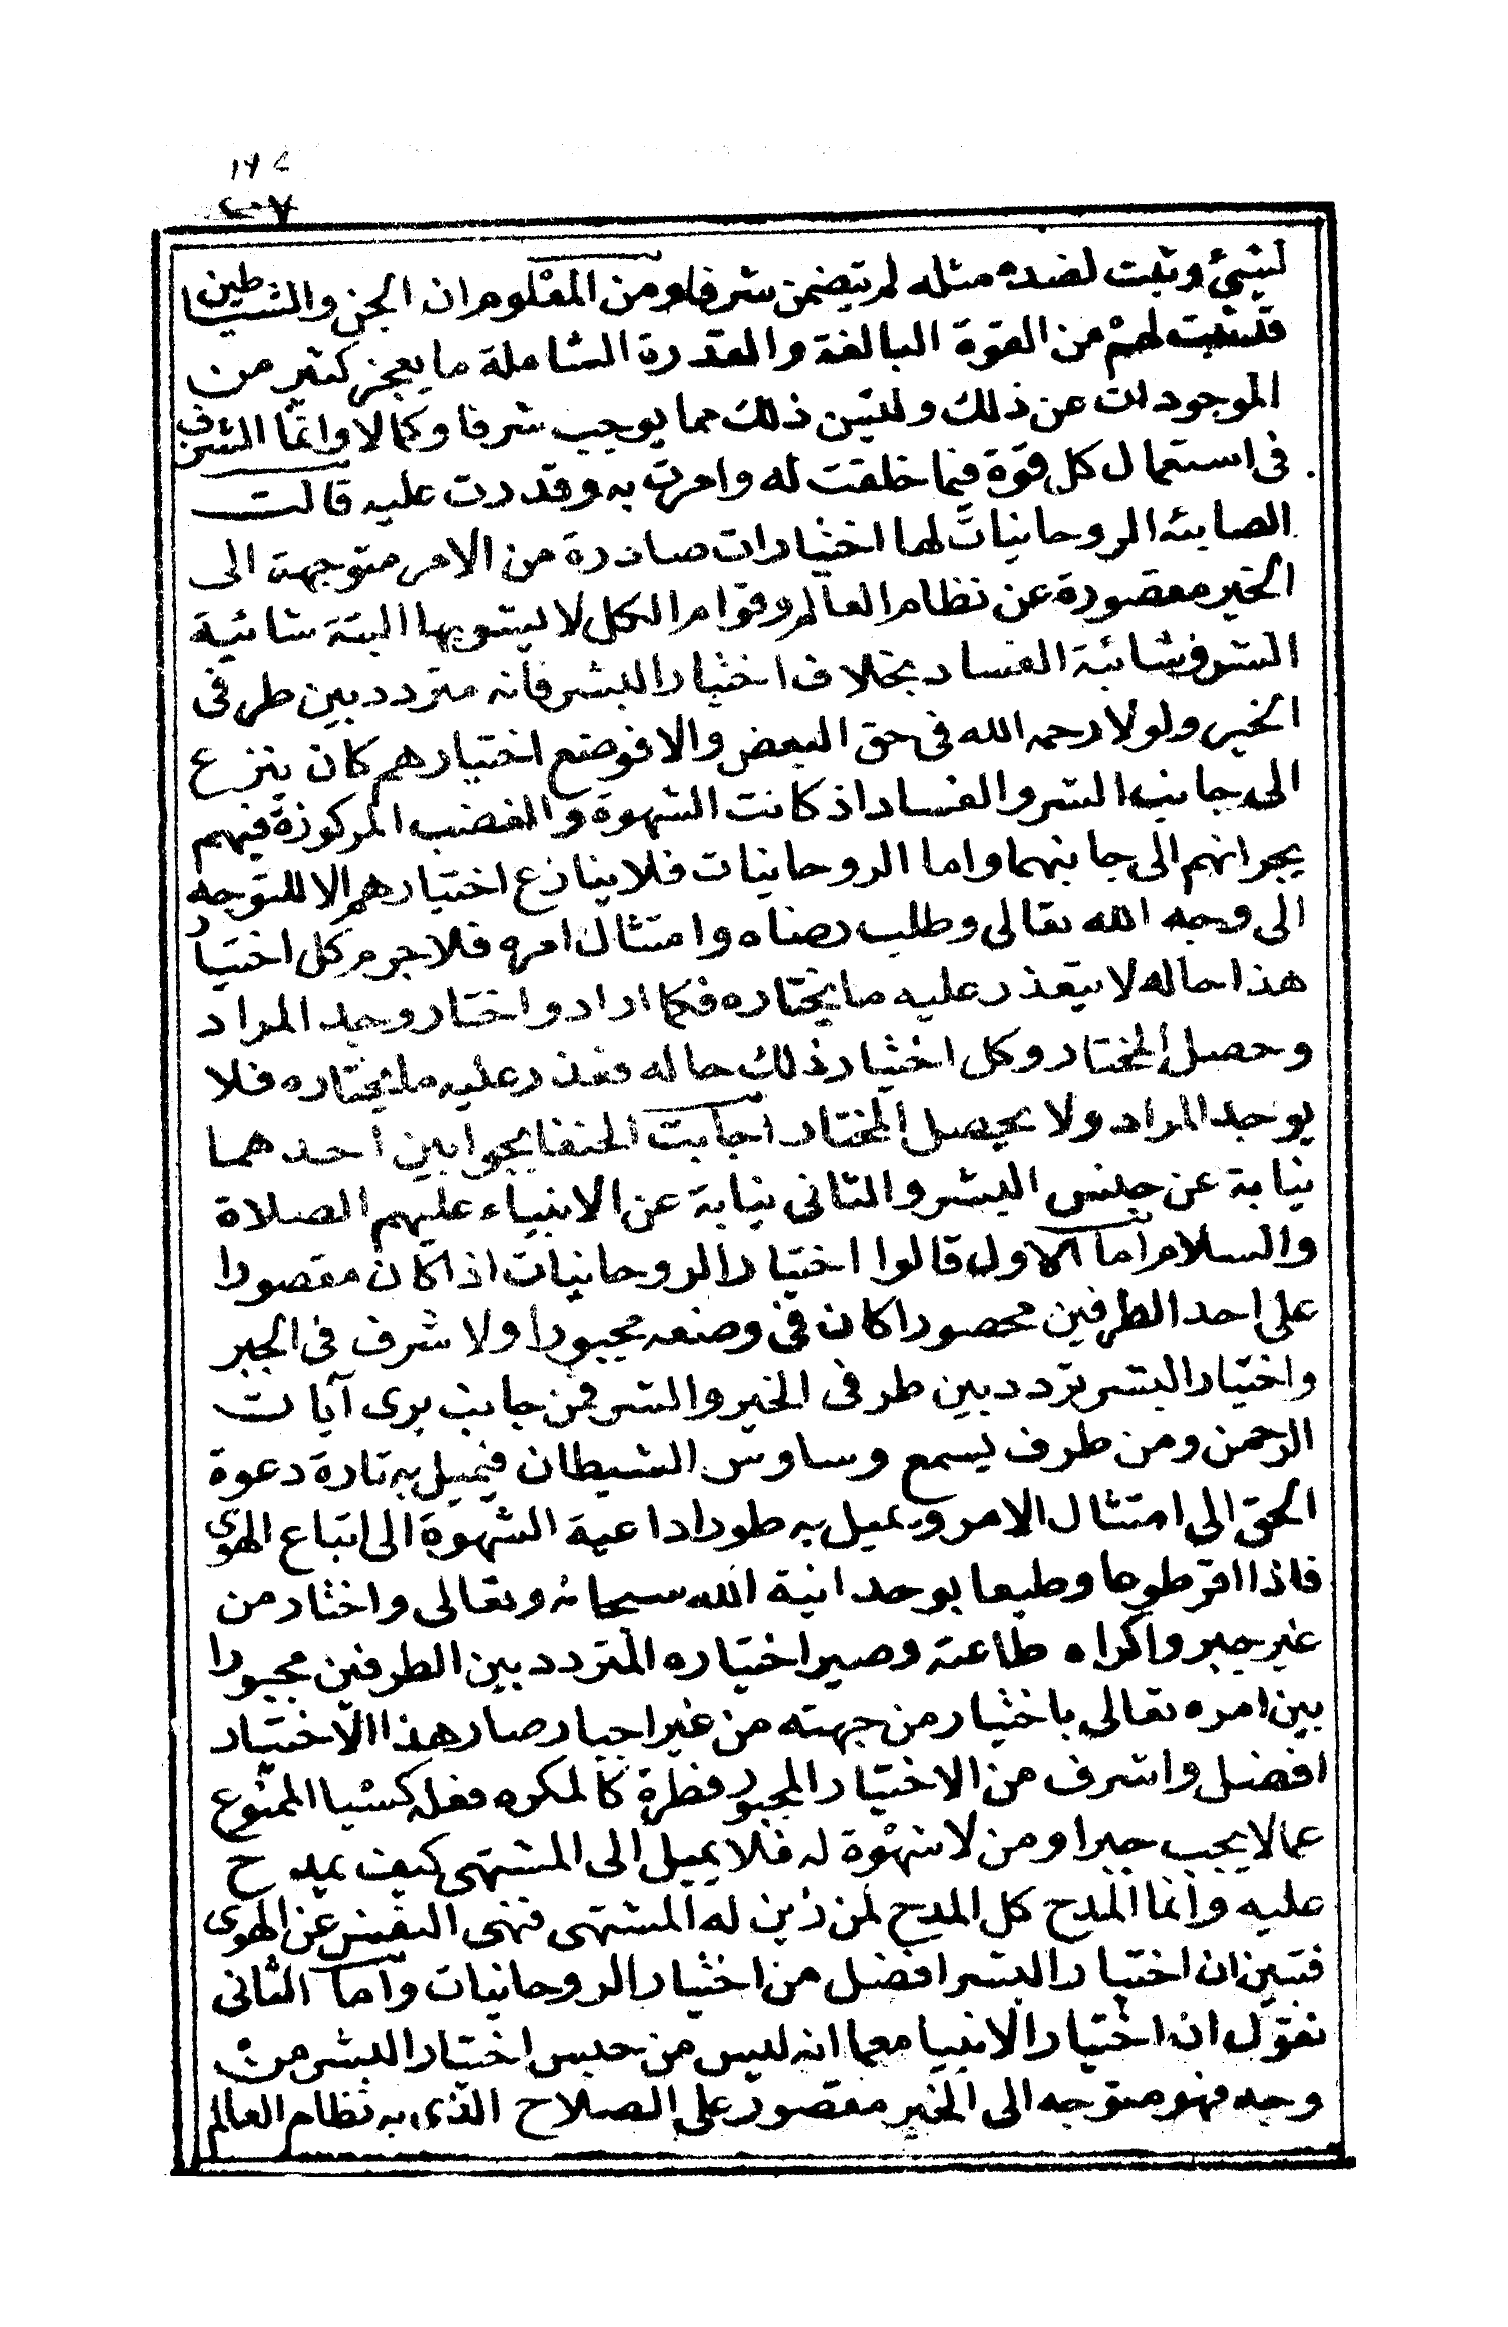 لشيئ وثبت لضده مثله لم يتضمن شرفا ومن المعلوم ان الجن والشياطين
قد ثبت لهم من القوة البالغة والقدرة الشاملة ما يعجز كثير من
الموجودات عن ذلك وليس ذلك مما يوجب شرفا وكمالا وانما الشرف
فى استعمال كل قوة فيما خلقت له وامرت به وقدرت عليه قالت
الصابئه الروحانيات لها اختيارات صادرة من الامر متوجهة الى
الخير مقصورة عن نظام العالم وقوام الكل لا يشوبها البتة شائبة
الشر وشائبة الفساد بخلاف اختيار البشر فانه متردد بين طرفى
الخير ولولا رحمه الله فى حق البعض والا فوضع اختيارهم كان ينزع
الى جانب الشر والفساد اذ كانت الشهوة والغضب المركوزة فيهم
يجرانهم الى جانبهما واما الروحانيات فلا ينازع اختيارهم الا للتوجه
الى وجه الله تعالى وطلب رضاه وامتثال امره فلا جرم كل اختيار
هذا حاله لا يتعذر عليه ما يختاره فكما اراد واختار وجد المراد
وحصل المختار وكل اختيار ذلك حاله تعذر عليه ما يختاره فلا
يوجد المراد ولا يحصل المختار اجابت الحنفا بجوابين احدهما
نيابة عن جنس البشر والثانى نيابة عن الانبياء عليهم الصلاة
والسلام اما الاول قالوا اختيار الروحانيات اذا كان مقصورا
على احد الطرفين محصورا كان فى وضعه مجبورا ولا شرف فى الجبر
واختيار البشر تردد بين طرفى الخير والشر فمن جانب يرى آيات
الرحمن ومن طرف يسمع وساوس الشيطان فيميل به تارة دعوة
الحق الى امتثال الامر ويميل به طورا داعية الشهوة الى اتباع الهوى
فاذا اقر طوعا وطبعا بوحدانية الله سبحانه وتعالى واختار من
غير جبر واكراه طاعته وصير اختياره المتردد بين الطرفين مجبورا
بين امره تعالى باختيار من جهته من غير اجبار صار هذا الاختيار
افضل واشرف من الاختيار المجبور فطرة كالمكره فعله كسبا الممنوع
عما لا يجب جبرا ومن لا شهوة له فلا يميل الى المشتهى كيف يمدح
عليه وانما المدح كل المدح لمن زين له المشتهى فنهى النفس عن الهوى
فتبين ان اختيار البشر افضل من اختيار الروحانيات واما الثانى
نقول ان اختيار الانبيا معما انه ليس من جنس اختيار البشر من
وجه فهو متوجه الى الخير مقصور على الصلاح الذى به نظام العالم